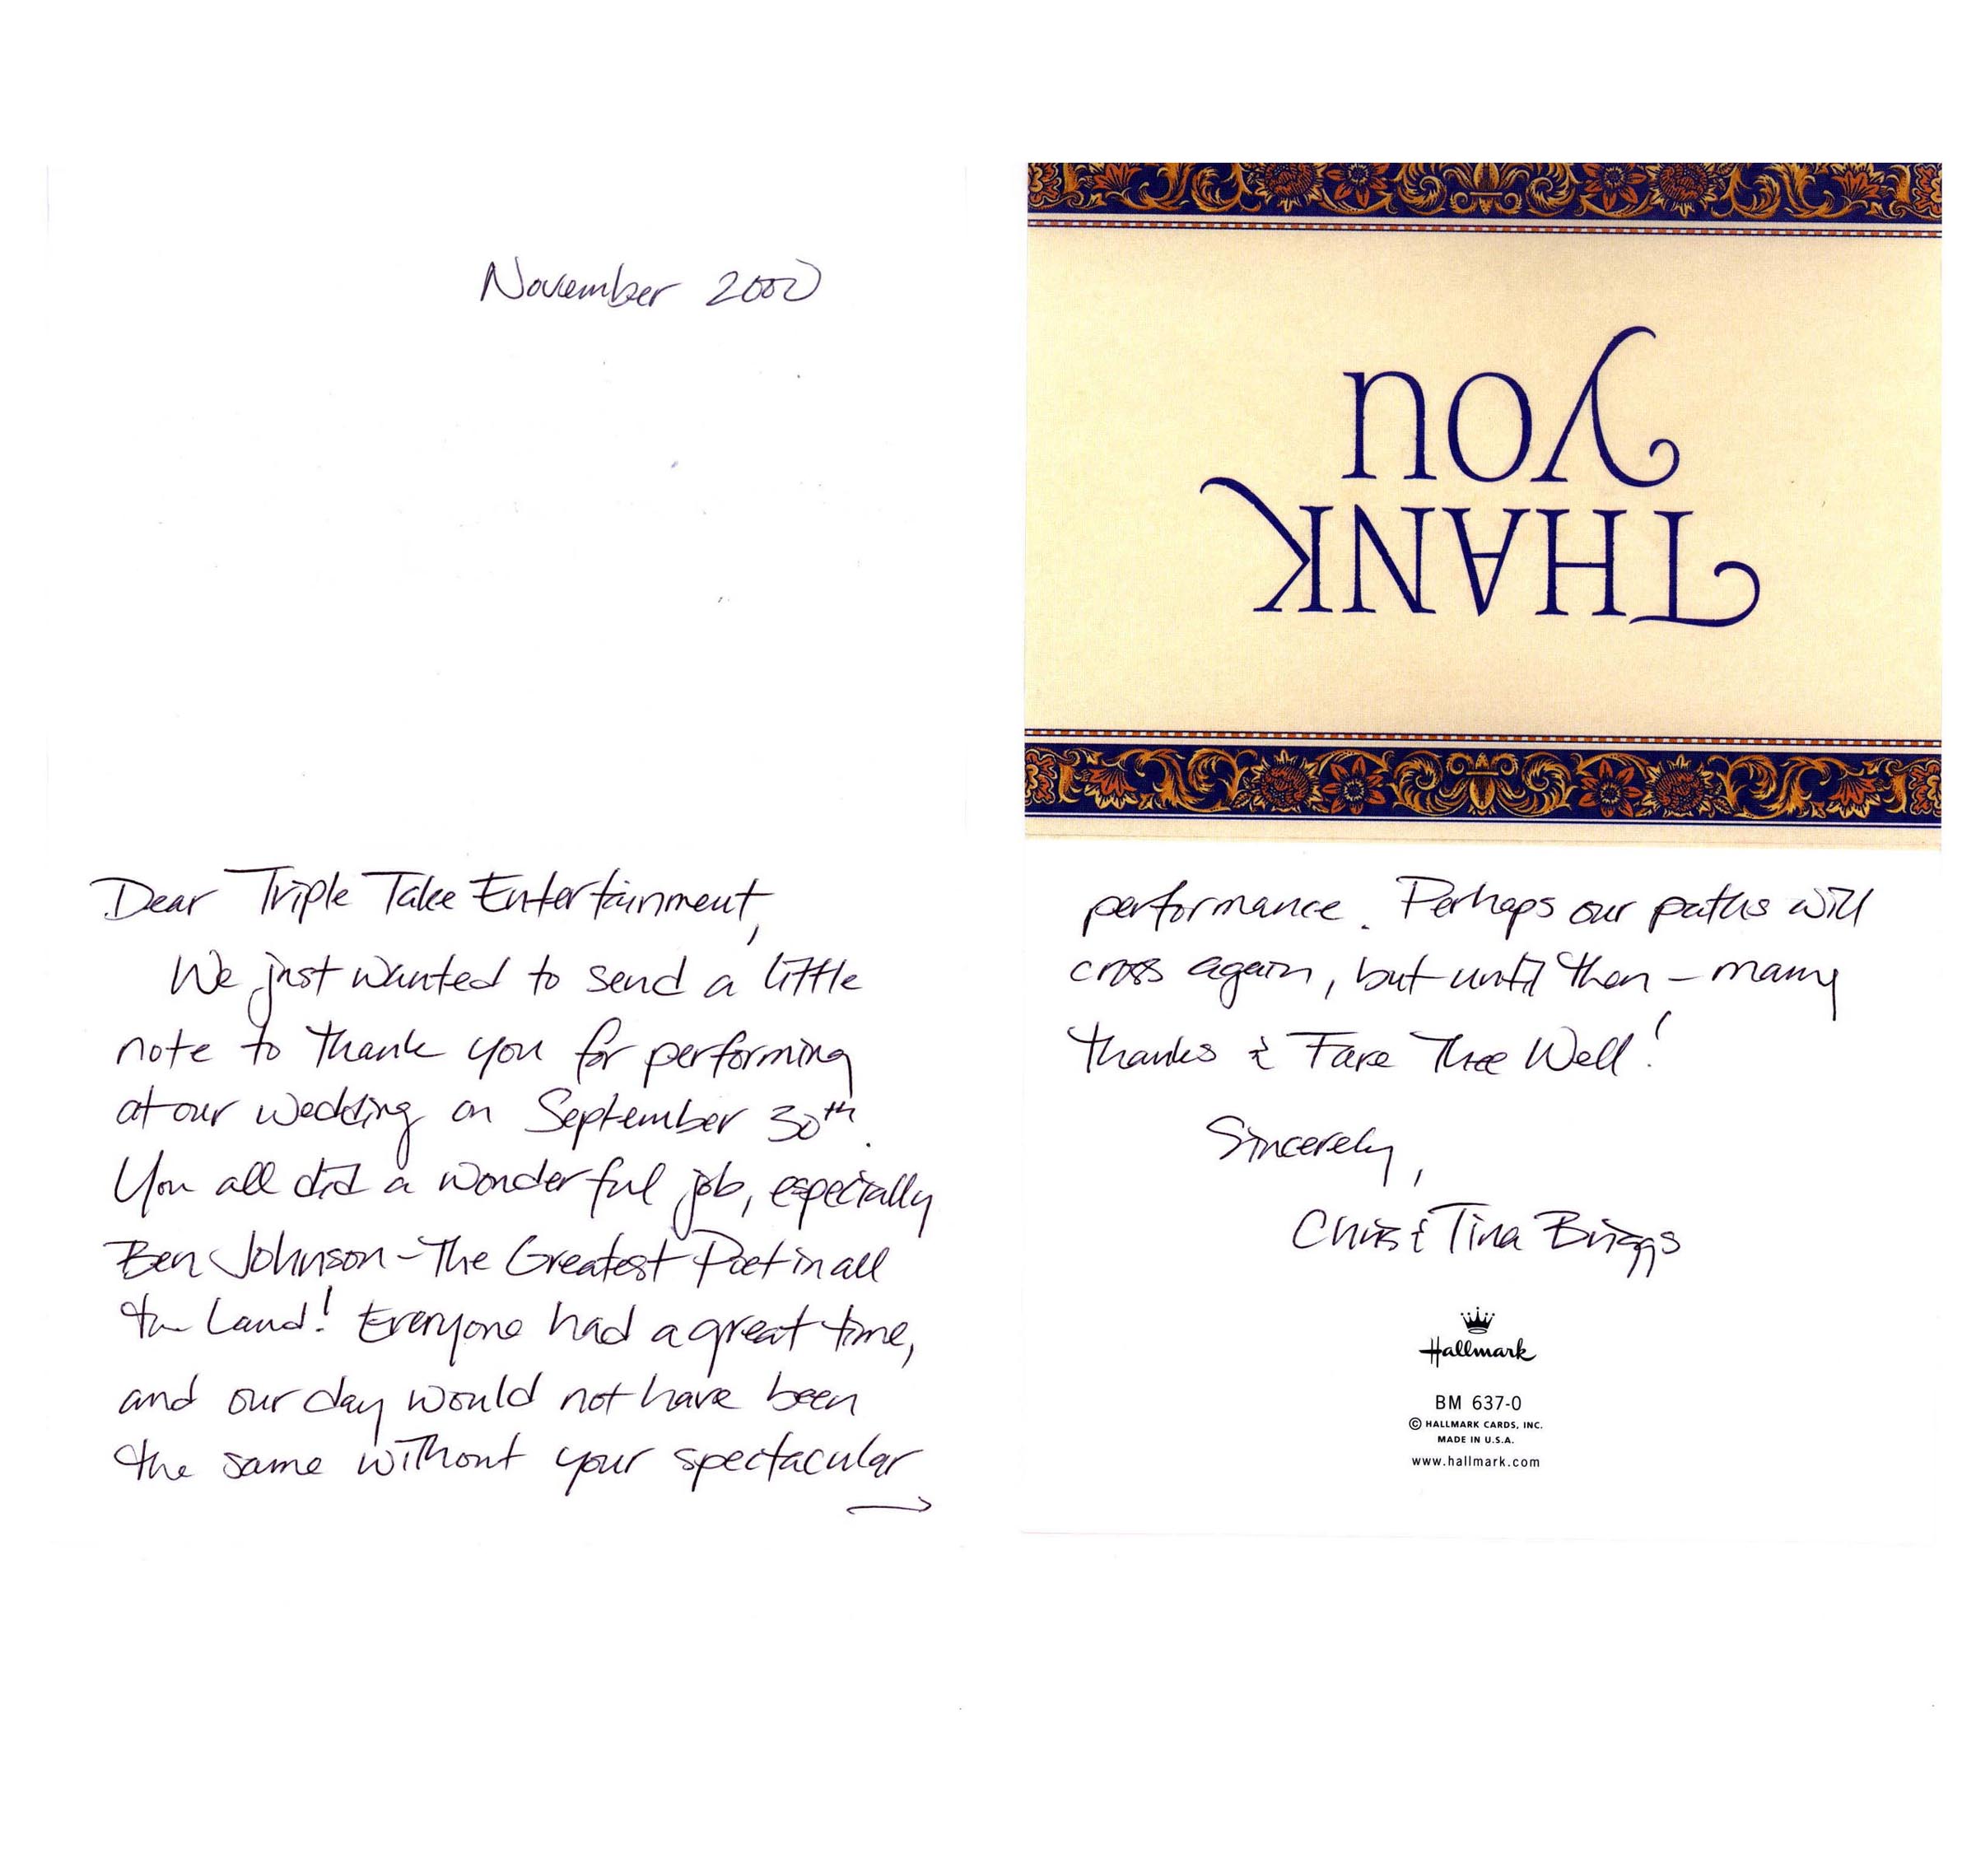 November 2000
Dear Triple Take Entertainment,
We just wanted to send a little
note to thank you for performing
at our wedding on September 30th.
You all did a wonderful job, especially
Ben Johnson - The Greatest Poet in all
the Land! Everyone had a great time,
and our day would not have been
the same without your spectacular
→
THANK
YOU
performance. Perhaps our paths will
cross again, but until then - many
thanks & Fare Thee Well!
Sincerely,
Chris & Tina Briggs
Hallmark
BM 637-0
© HALLMARK CARDS, INC.
MADE IN U.S.A.
www.hallmark.com